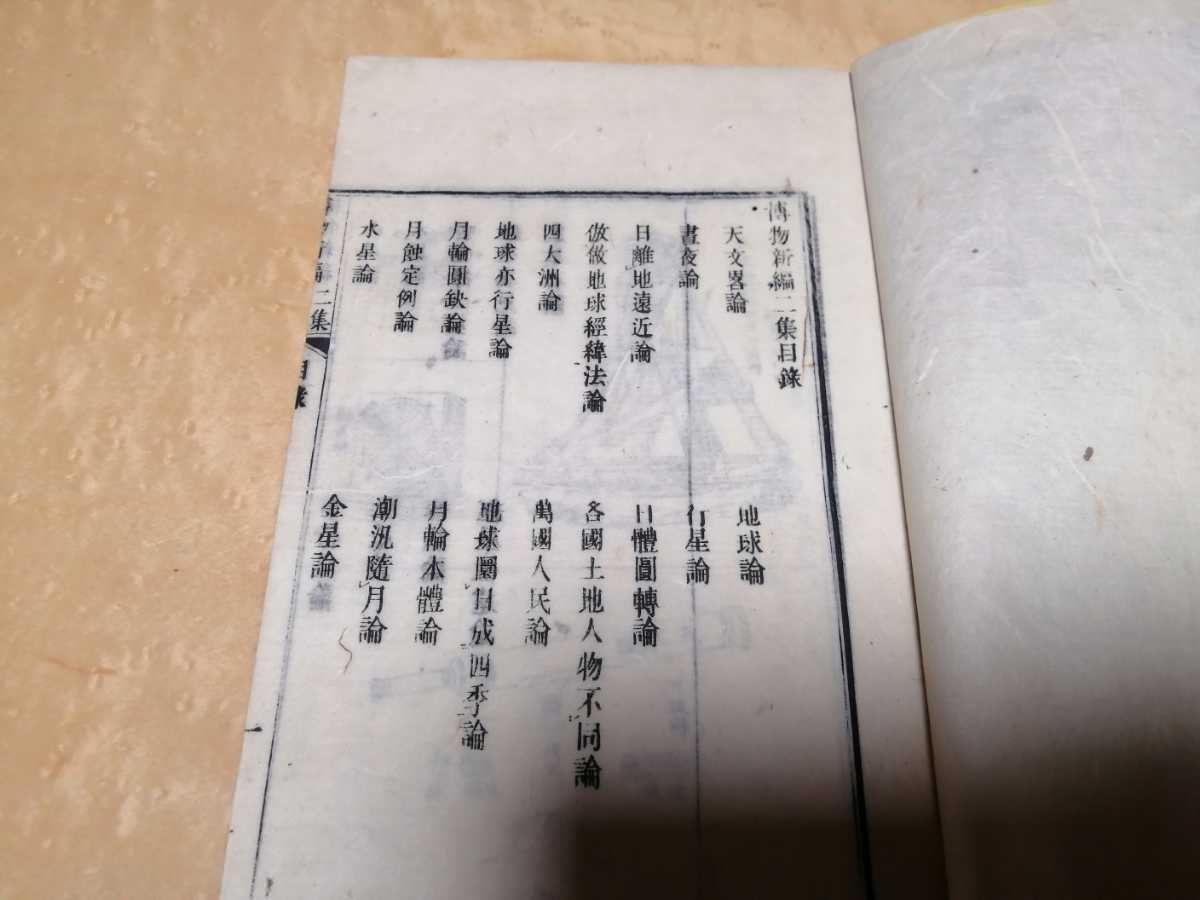 博物新編二集目錄
天文畧論
地球論
晝夜論
行星論
日離地遠近論
日體圓轉論
倣做地球經緯法論
各國土地人物不同論
四大洲論
萬國人民論
地球亦行星論
地球圜日成四季論
月輪圓缺論
月輪本體論
月蝕定例論
潮汛隨月論
水星論
金星論
二集
目錄
一